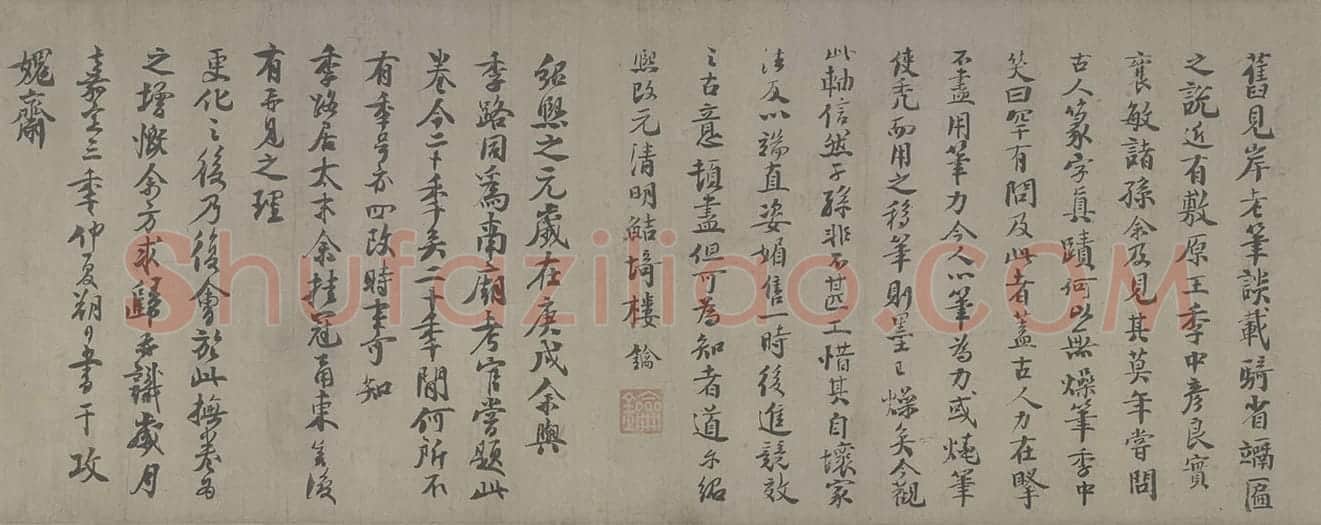 舊見岸老筆談載騎省竵匾
之說近有敷原王季中彥良實
襄敏諸孫余及見其莫年嘗問
古人篆字真蹟何以無燥筆季中
笑曰罕有問及此者蓋古人力在掔
不盡用筆力今人以筆為力或燒筆
使禿而用之移筆則墨已燥矣今觀
此軸信然子孫非不甚工惜其自壞家
法反以端直姿媚售一時後進競效
之古意頓盡但可為知者道尒紹
熙改元清明鮚埼樓鑰
紹熙之元歲在庚戌余與
季路同為南廟考官嘗題此
卷今二十年矣二十年間何所不
有年号亦四改時事可知
季路居太末余挂冠甬東無復
有再見之理
更化之後乃復會於此撫卷為
之增慨余方求歸再識歲月
嘉定三年仲夏朔日書于攻
媿齋
Shufaziliao.com